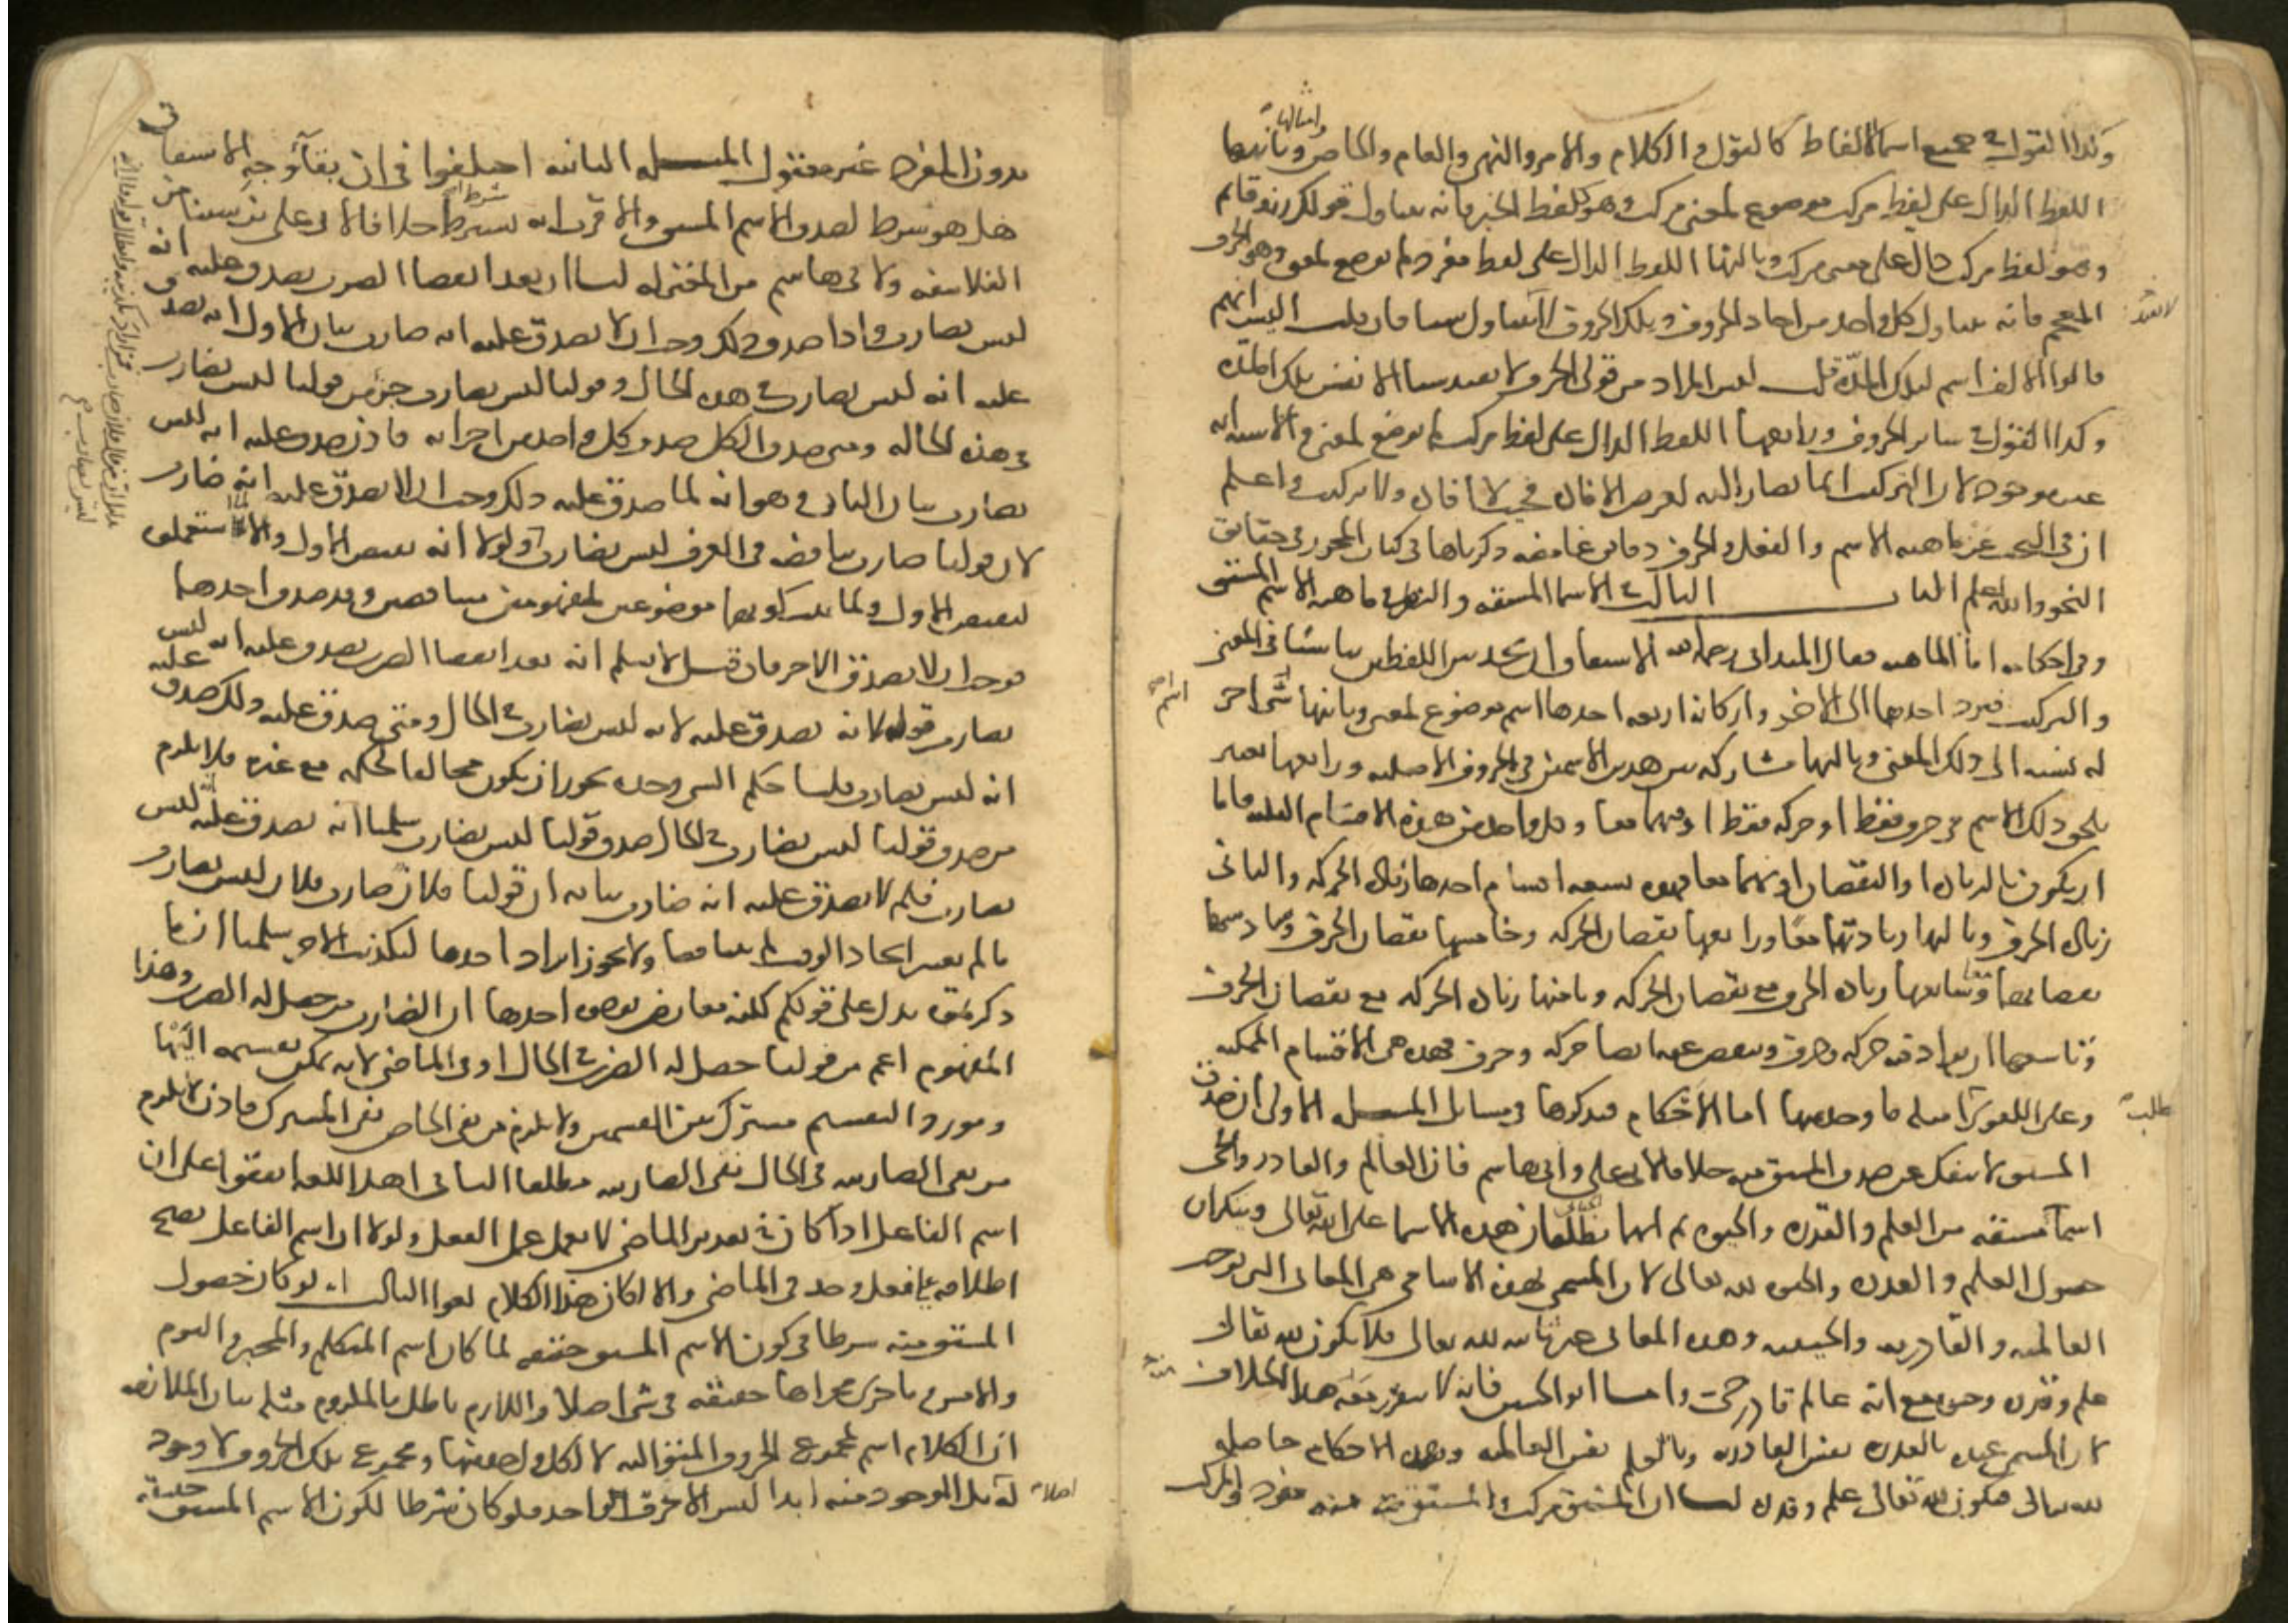 وكذا القول في جميع اسما الالفاظ كالقول والكلام والامر والنهي والعام والخاص وامثالها وثانيها
اللفظ الدال على لفظ مركب موضوع لمعنى مركب وهو كلفظ الخبر فانه يتناول قولك زيد قائم
وهو لفظ مركب دال على معنى مركب وثالثها اللفظ الدال على لفظ مفرد لم يوضع لمعنى وهو الحرف
المعجم فانه يتناول كل واحد من احاد الحروف وتلك الحروف لا تتناول شيئا فان قلت اليس انهم
قالوا الالف اسم لتلك المدة قلت ليس المراد من قولي الحرف لا يفيد شيئا الا نفس تلك المدة
وكذا القول في سائر الحروف ورابعها اللفظ الدال على لفظ مركب لم يوضع لمعنى والاشبه انه
غير موجود لان التركيب انما يصار اليه لغرض الافادة فحيث لا افادة فلا تركيب واعلم
ان في البحث عن ماهية الاسم والفعل والحرف دقائق غامضة ذكرناها في كتاب المحرر في حقائق
النحو والله اعلم الباب الثالث في الاسما المشتقة والنظر في ماهية الاسم المشتق
وفي احكامه اما الماهية فقال الميداني رحمه الله الاشتقاق ان تجد بين اللفظين تناسبا في المعنى
والتركيب فترد احدهما الى الاخر واركانه اربعة احدها اسم موضوع لمعنى وثانيها شى اخر
له نسبة الى ذلك المعنى وثالثها مشاركة بين هذين الاسمين في الحروف الاصلية ورابعها تغيير
يلحق ذلك الاسم في حرف فقط او حركة فقط او فيهما معا وكل واحد من هذه الاقسام الثلثة فاما
ان يكون بالزيادة او النقصان او بهما معا فهذه تسعة اقسام احدها زيادة الحركة والثاني
زيادة الحرف وثالثها زيادتهما معا ورابعها نقصان الحركة وخامسها نقصان الحرف وسادسها
نقصانهما معا وسابعها زيادة الحرف مع نقصان الحركة وثامنها زيادة الحركة مع نقصان الحرف
وتاسعها ان يزاد فيه حركة وحرف وينقص عنه ايضا حركة وحرف فهذه هي الاقسام الممكنة
وعلى اللغوي طلب امثلة ما وجد منها اما الاحكام فنذكرها في مسائل المسئلة الاولى ان صدق
المشتق لا ينفك عن صدق المشتق منه خلافا لابي علي وابي هاشم فان العالم والقادر والحي
اسما مشتقة من العلم والقدرة والحيوة ثم انهما يطلقان هذه الاسما على الله تعالى وينكران
حصول العلم والقدرة والحيوة لله تعالى لان المسمى بهذه الاسامي هي المعاني التي توجب
العالمية والقادرية والحيية وهذه المعاني غير ثابتة لله تعالى فلا يكون لله تعالى
علم وقدرة وحيوة مع انه عالم قادر حي واما ابو الحسين فانه لا يتقرر معه هذا الخلاف
لان المسمى عنده بالقدرة نفس القادرية وبالعلم نفس العالمية وهذه الاحكام حاصلة
لله تعالى فيكون لله تعالى علم وقدرة لنا ان المشتق مركب والمشتق منه مفرد والمركب
بدون المفرد غير معقول المسئلة الثانية اختلفوا في ان بقا وجه الاشتقاق
هل هو شرط لصدق الاسم المشتق والاقرب انه ليس شرط خلافا لابي علي بن سينا من
الفلاسفة ولابي هاشم من المعتزلة لنا ان بعد انقضا الضرب يصدق عليه انه
ليس بضارب واذا صدق ذلك وجب ان لا يصدق عليه انه ضارب بيان الاول انه يصدق
عليه انه ليس بضارب في هذه الحال وقولنا ليس بضارب جزء من قولنا ليس بضارب
في هذه الحالة ومتى صدق الكل صدق كل واحد من اجزائه فاذن صدق عليه انه ليس
بضارب بيان الثاني وهو انه لما صدق عليه ذلك وجب ان لا يصدق عليه انه ضارب
لان قولنا ضارب يناقضه في العرف ليس بضارب ولولا انه نقيض الاول والا لما استعملوه
لنقيض الاول ولما ثبت كونهما موضوعين لمفهومين متناقضين وقد صدق احدهما
فوجب ان لا يصدق الاخر فان قيل لا نسلم انه بعد انقضا الضرب يصدق عليه انه ليس
بضارب قوله لانه يصدق عليه لانه ليس بضارب في الحال ومتى صدق عليه ذلك صدق عليه
انه ليس بضارب قلنا حكم الشي وحده يجوز ان يكون مخالفا لحكمه مع غيره فلا يلزم
من صدق قولنا ليس بضارب في الحال صدق قولنا ليس بضارب سلمنا انه يصدق عليه انه ليس
بضارب فلم لا يصدق عليه انه ضارب بيانه ان قولنا فلان ضارب فلان ليس بضارب
ما لم يعتبر اتحاد الوقت لم يتناقضا ولا يجوز ايراد احدهما لتكذيب الاخر سلمنا ان ما
ذكرتموه يدل على قولكم لكنه معارض بوجوه احدها ان الضارب من حصل له الضرب وهذا
المفهوم اعم من قولنا حصل له الضرب في الحال او في الماضي لانه يمكن تقسيمه اليهما
ومورد التقسيم مشترك بين القسمين ولا يلزم من نفي الخاص نفي المشترك فاذن لا يلزم
من نفي الضاربية في الحال نفي الضاربية مطلقا الثاني اهل اللغة اتفقوا على ان
اسم الفاعل اذا كان في تقدير الماضي لا يعمل عمل الفعل ولولا ان اسم الفاعل يصح
اطلاقه على فعل وجد في الماضي والا لكان هذا الكلام لغوا الثالث انه لو كان حصول
المشتق منه شرطا في كون الاسم المشتق حقيقة لما كان اسم المتكلم والمخبر واليوم
والامس وما جرى مجراها حقيقة في شي اصلا واللازم باطل فالملزوم مثله بيان الملازمة
ان الكلام اسم لمجموع الحروف المتوالية لا لكل واحد منها ومجموع تلك الحروف لا وجود
له اصلا بل الموجود منه ابدا ليس الا الحرف الواحد فلو كان شرطا لكون الاسم المشتق حقيقة